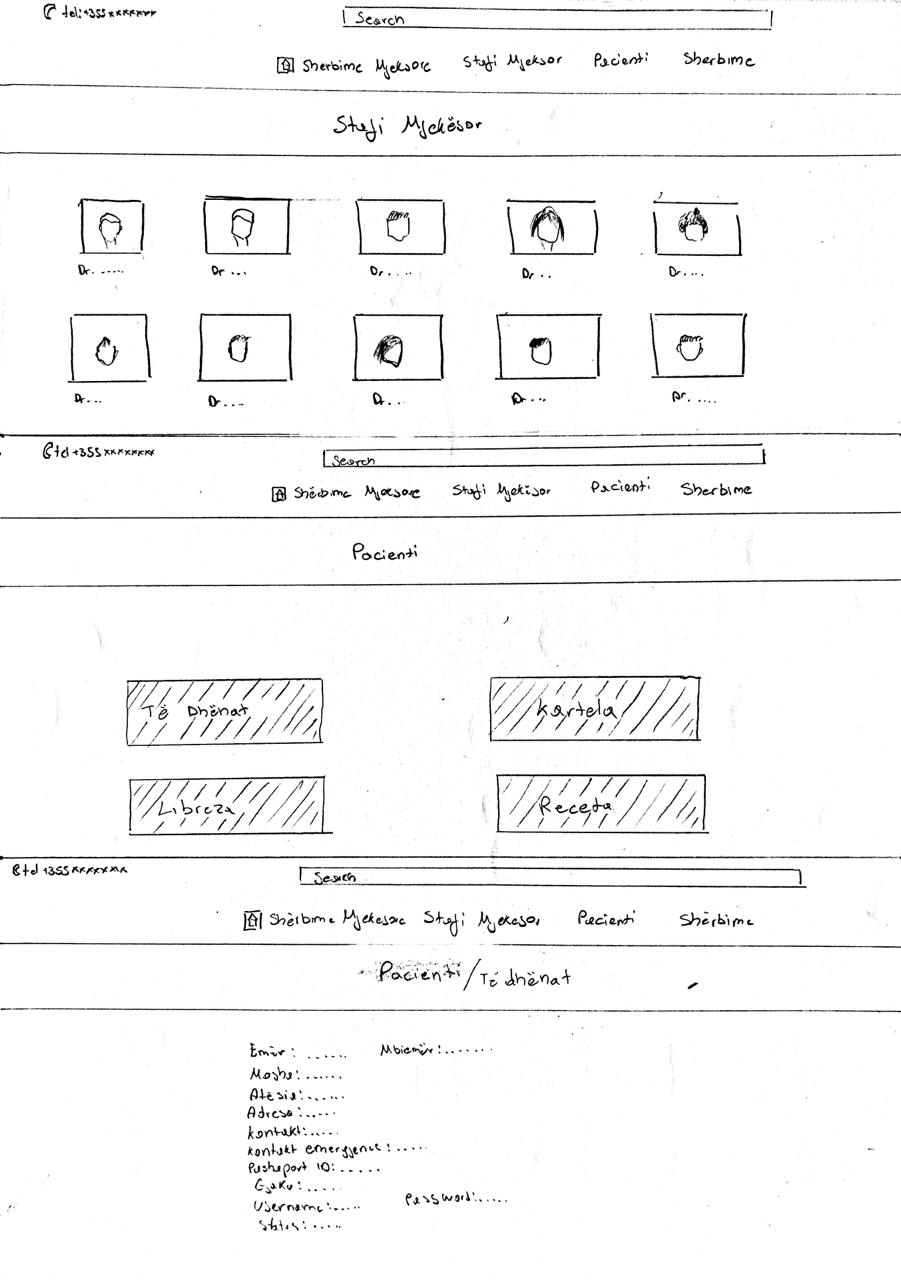 tel:+355xxxxxxx
Search
Sherbime Mjeksore Stafi Mjeksor Pacienti Sherbime
Stafi Mjekësor
Dr. ..... Dr ... Dr. .... Dr. .. Dr. ....
Dr... Dr.... Dr. ... Dr. ... Dr. ....
tel +355xxxxxxx
Search
Shërbime Mjeksore Stafi Mjekësor Pacienti Sherbime
Pacienti
Të Dhënat Kartela
Libreza Receta
tel +355xxxxxxx
Search
Shërbime Mjekesore Stafi Mjekesor Pacienti Shërbime
Pacienti/Të dhënat
Emër: ...... Mbiemër:.......
Mosha:......
Atësia:......
Adresa:.....
Kontakt:.....
Kontakt emergjence:.....
Pashaport ID:.....
Gjaku:.....
Username:..... Password:.....
Status:.....